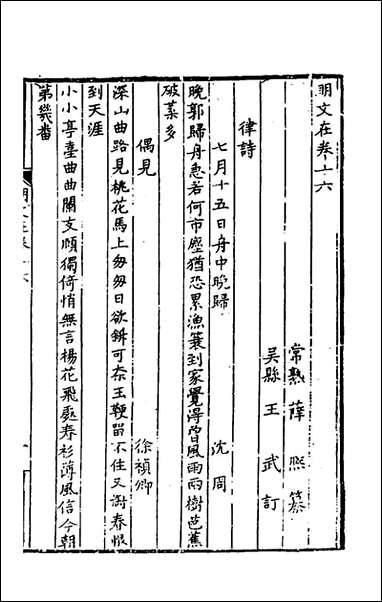 明文在卷十六
常熟 薛熙 纂
吳縣 王武 訂
律詩
七月十五日舟中晚歸 沈周
晚郭歸舟急若何市塵猶恐累漁蓑到家覺得曾風雨兩樹芭蕉
破葉多
偶見 徐禎卿
深山曲路見桃花馬上匆匆日欲斜可奈玉鞭留不住又對春恨
到天涯
小小亭臺曲曲闌支頤獨倚悄無言楊花飛處春衫薄風信今朝
第幾番
明文在卷十六